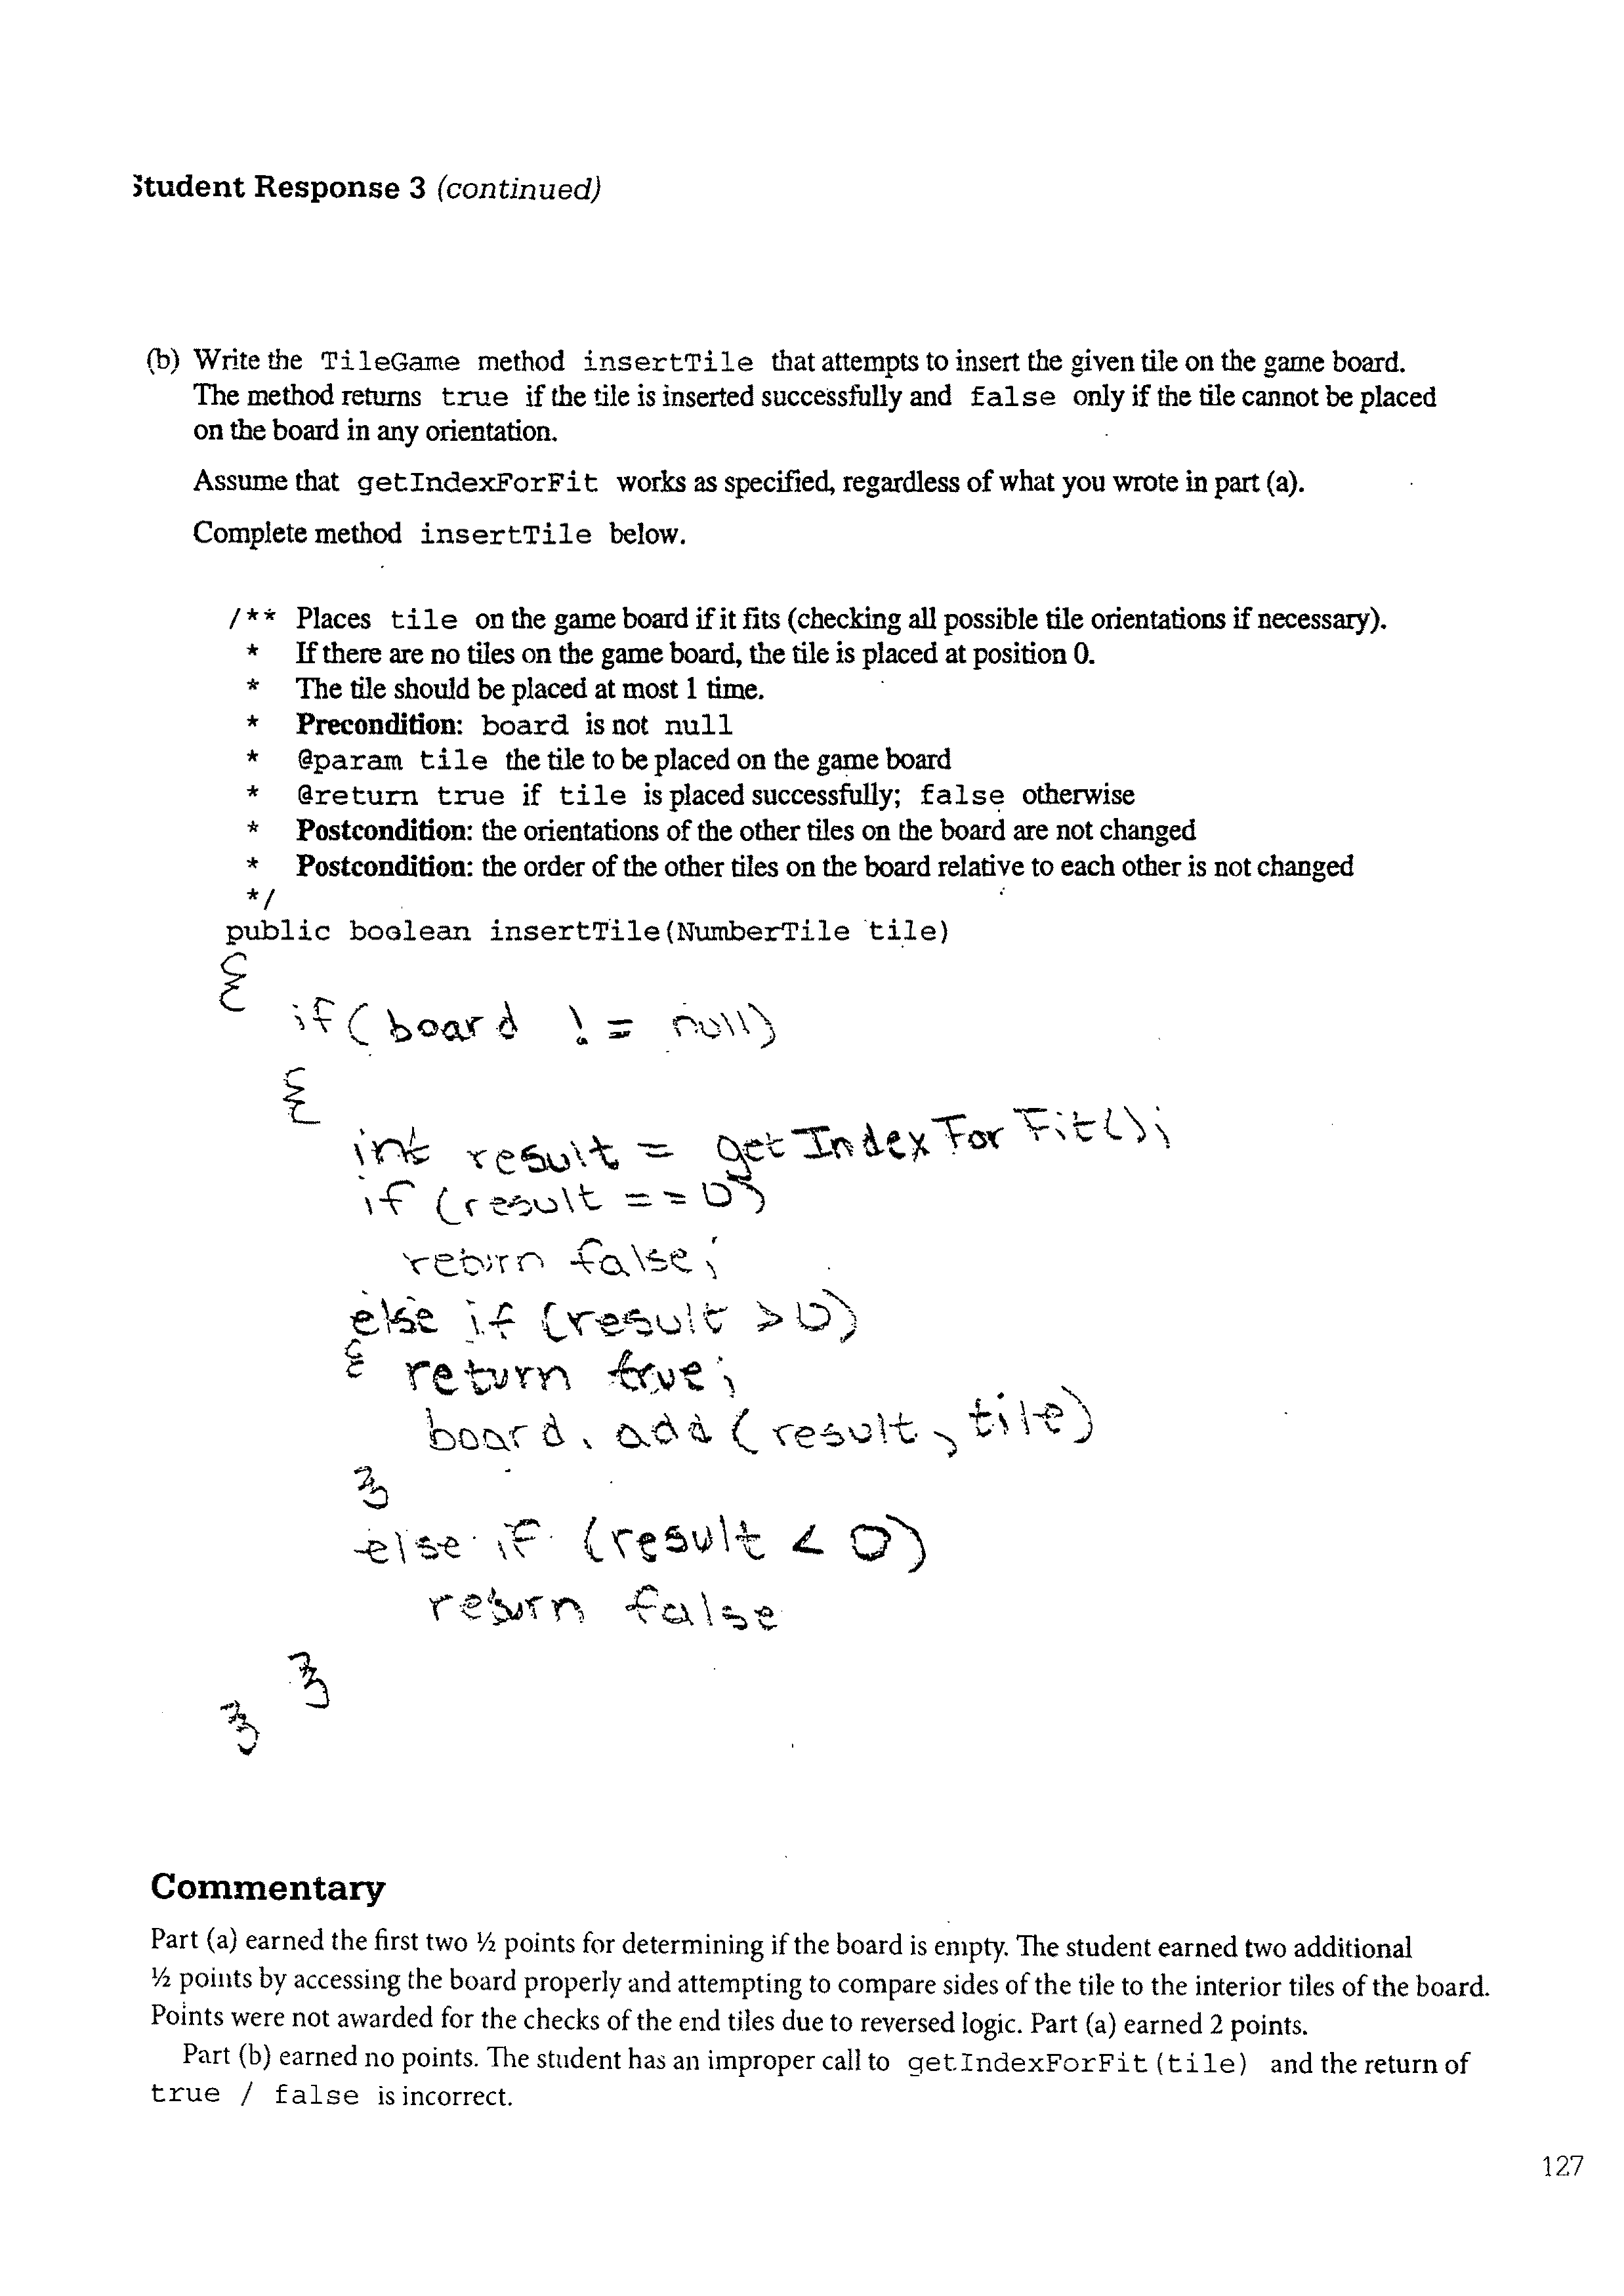 Student Response 3 (continued)
(b) Write the TileGame method insertTile that attempts to insert the given tile on the game board.
The method returns true if the tile is inserted successfully and false only if the tile cannot be placed
on the board in any orientation.
Assume that getIndexForFit works as specified, regardless of what you wrote in part (a).
Complete method insertTile below.
/** Places tile on the game board if it fits (checking all possible tile orientations if necessary).
* If there are no tiles on the game board, the tile is placed at position 0.
* The tile should be placed at most 1 time.
* Precondition: board is not null
* @param tile the tile to be placed on the game board
* @return true if tile is placed successfully; false otherwise
* Postcondition: the orientations of the other tiles on the board are not changed
* Postcondition: the order of the other tiles on the board relative to each other is not changed
*/
public boolean insertTile(NumberTile tile)
{
if(board != null)
{
int result = getIndexForFit();
if (result == 0)
return false;
else if (result > 0)
{ return true;
board.add(result, tile)
}
else if (result < 0)
return false
}
}
Commentary
Part (a) earned the first two ½ points for determining if the board is empty. The student earned two additional
½ points by accessing the board properly and attempting to compare sides of the tile to the interior tiles of the board.
Points were not awarded for the checks of the end tiles due to reversed logic. Part (a) earned 2 points.
Part (b) earned no points. The student has an improper call to getIndexForFit(tile) and the return of
true / false is incorrect.
127